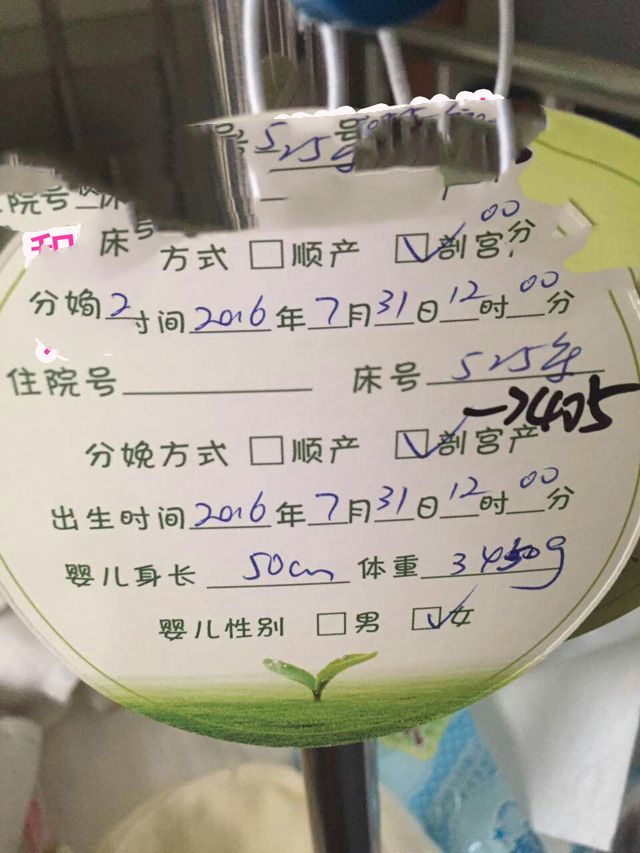 号 525
院号 床
和 床号 方式 □ 顺产 ☑ 剖宫 00 分
分娩 2 时间 2016 年 7 月 31 日 12 时 00 分
住院号 床号 525
→405
分娩方式 □ 顺产 ☑ 剖宫产
出生时间 2016 年 7 月 31 日 12 时 00 分
婴儿身长 50cm 体重 3450g
婴儿性别 □ 男 ☑ 女